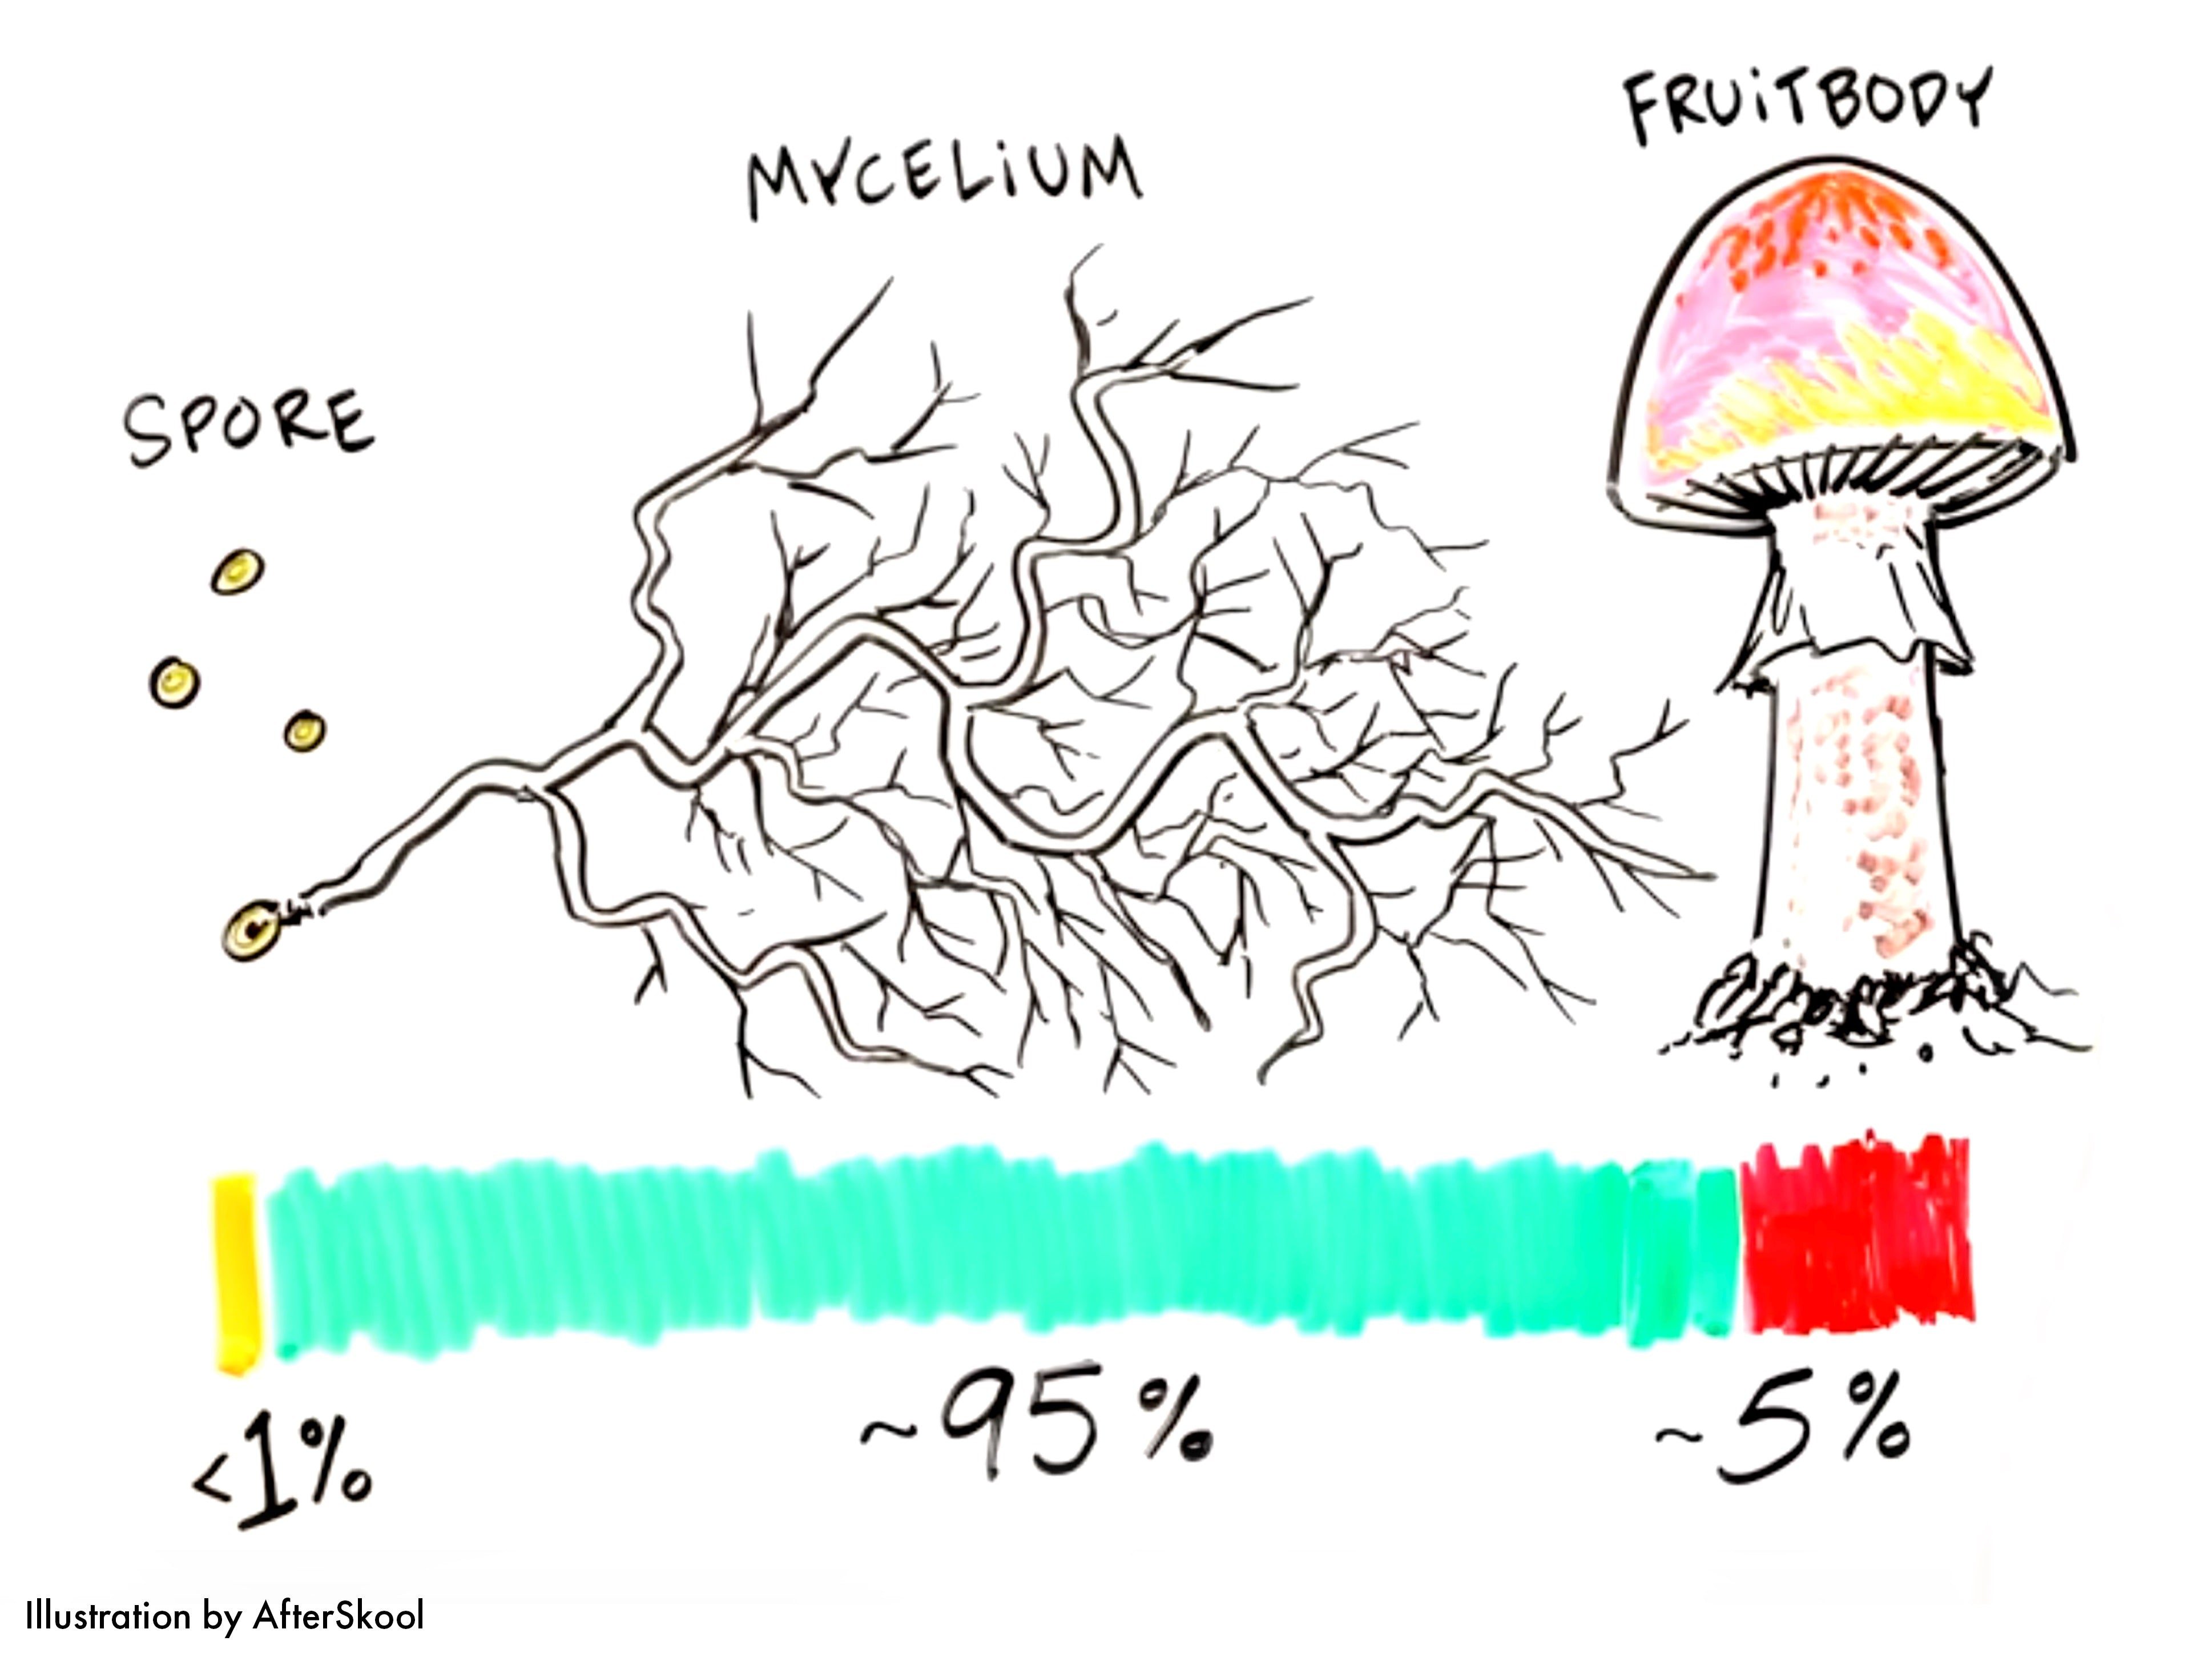 FRUiTBODY
MYCELiUM
SPORE
<1%
~95%
~5%
Illustration by AfterSkool